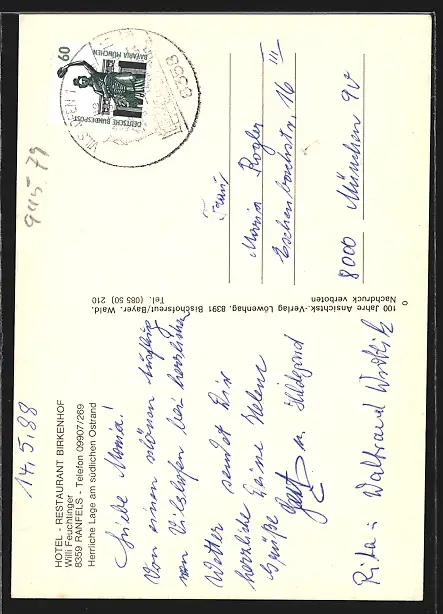 HOTEL - RESTAURANT BIRKENHOF
Willi Feuchtinger
8359 RANFELS - Telefon 09907/269
Herrliche Lage am südlichen Ostrand
14.5.88
Liebe Maria!
Von einem schönen Ausflug
von Vilshofen bei herrlichem
Wetter sendet Dir
herzliche Deine Helene
Grüße
u. Hildegard
Rita: Waltraud
100 Jahre Ansichtsk.-Verlag Löwenhag. 8391 Bischofsreut/Bayer. Wald.
Tel. (085 50) 210
Nachdruck verboten
60
BAVARIA MÜNCHEN
DEUTSCHE BUNDESPOST
8358
945.79
Frau
Maria Rogler
Eschenbachstr. 16 III
8000 München 90